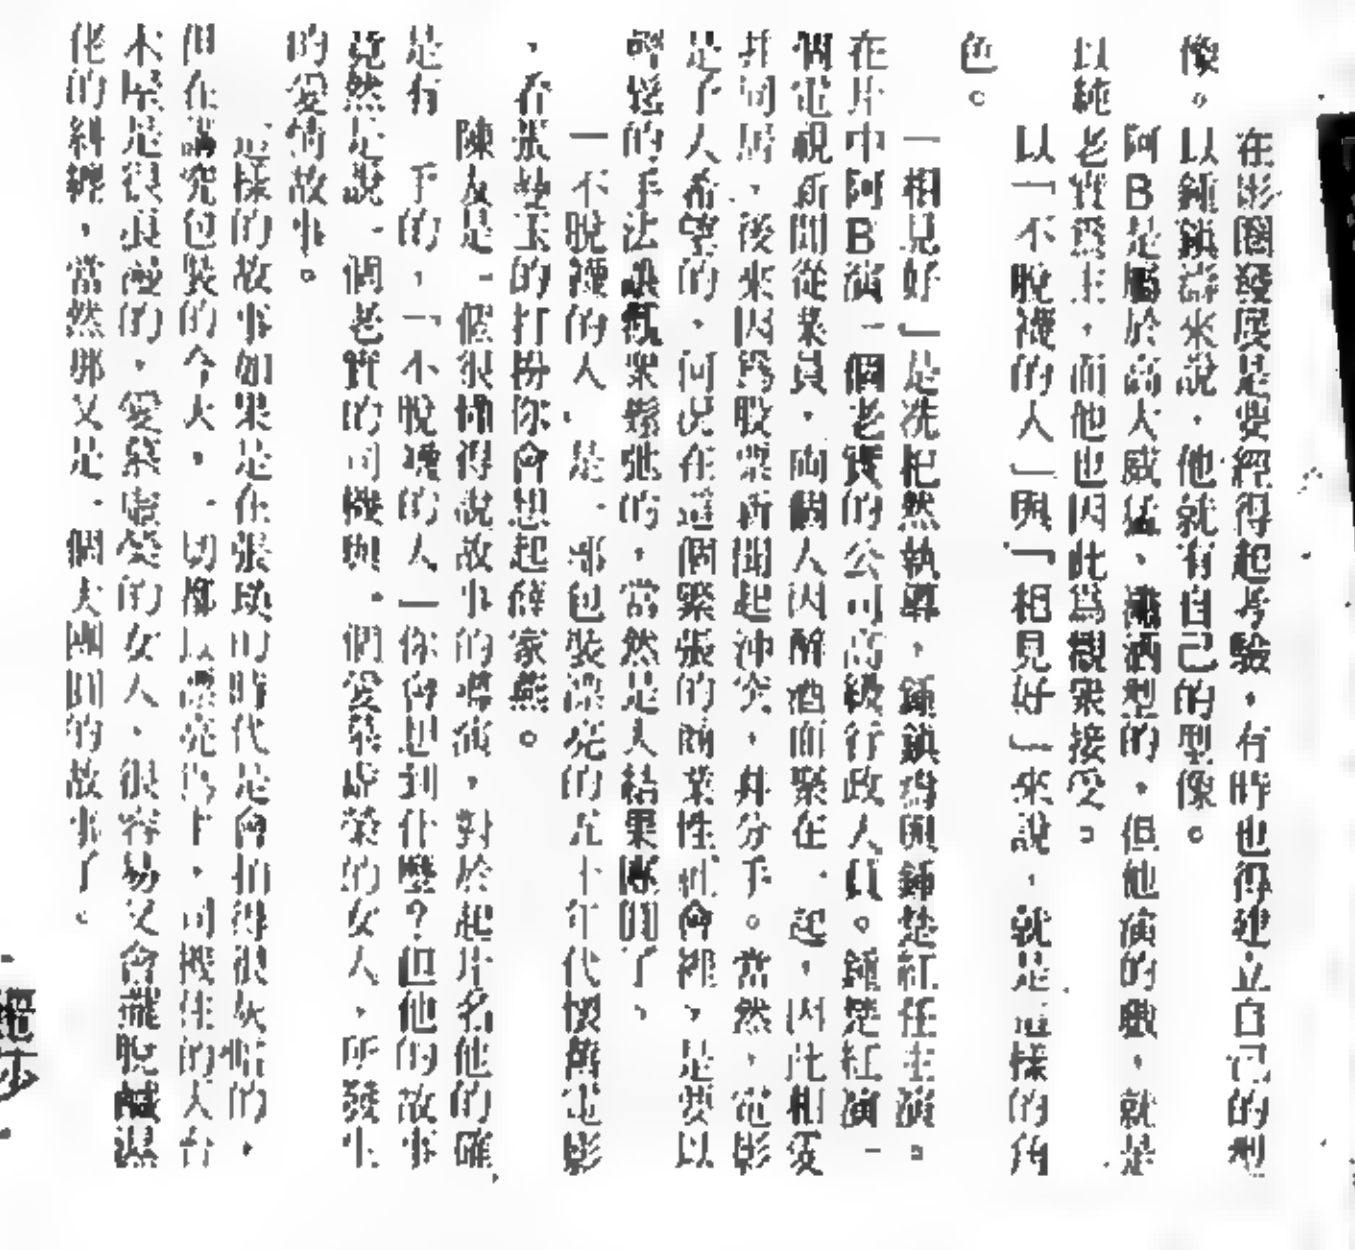 在影圈發展是要經得起考驗，有時也得建立自己的型
像。以鍾鎮濤來說，他就有自己的型像。
阿B是屬於高大威猛、瀟洒型的，但他演的戲，就是
以純老實爲主，而他也因此爲觀衆接受。
以「不脫襪的人」與「相見好」來說，就是這樣的角
色。
「相見好」是冼杞然執導，鍾鎮濤與鍾楚紅任主演。
在片中阿B演一個老實的公司高級行政人員。鍾楚紅演一
個電視新聞從業員，兩個人因醉酒而聚在一起，因此相愛
并同居，後來因爲股票新聞起沖突，井分手。當然，電影
是了人希望的，何况在這個緊張的商業性社會裡，是要以
輕鬆的手法讓觀衆鬆弛的，當然是大結果團圓了、
「不脫襪的人」是一部包裝漂亮的五十年代懷舊電影
，看張艾玉的打扮你會想起薛家燕。
陳友是一個很懂得說故事的導演，對於起片名他的確
是有一手的，「不脫襪的人」你會想到什麼？但他的故事
竟然是說一個老實的司機與一個愛慕虛榮的女人，所發生
的愛情故事。
這樣的故事如果是在張瑛的時代是會拍得很灰暗的，
但在講究包裝的今天，一切都以漂亮爲主，司機住的天台
木屋是很浪漫的，愛慕虛榮的女人，很容易又會藏脫鹹濕
佬的糾纏，當然那又是一個大團圓的故事了。